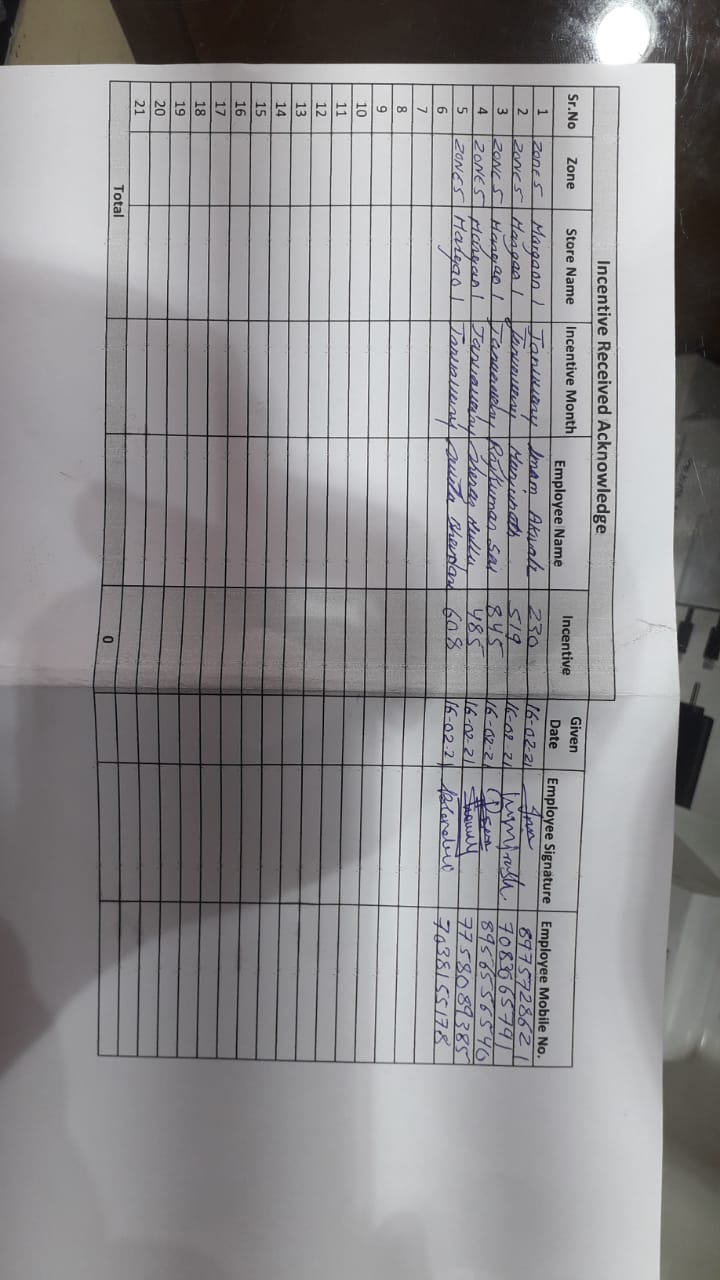 Incentive Received Acknowledge
Sr.No Zone Store Name Incentive Month Employee Name Incentive Given Date Employee Signature Employee Mobile No.
1 Zone 5 Margaon 1 January Imam 230 16-02-21 8975728621
2 ZONE 5 Margao 1 January Manjunath 519 16-02-21 7083665791
3 ZONE 5 Margao 1 January Rajkumar Sai 845 16-02-21 8956556540
4 ZONE 5 Margao 1 January 485 16-02-21 7758089385
5 ZONE 5 Margao 1 January 608 16-02-21 7038155178
6
7
8
9
10
11
12
13
14
15
16
17
18
19
20
21
Total 0